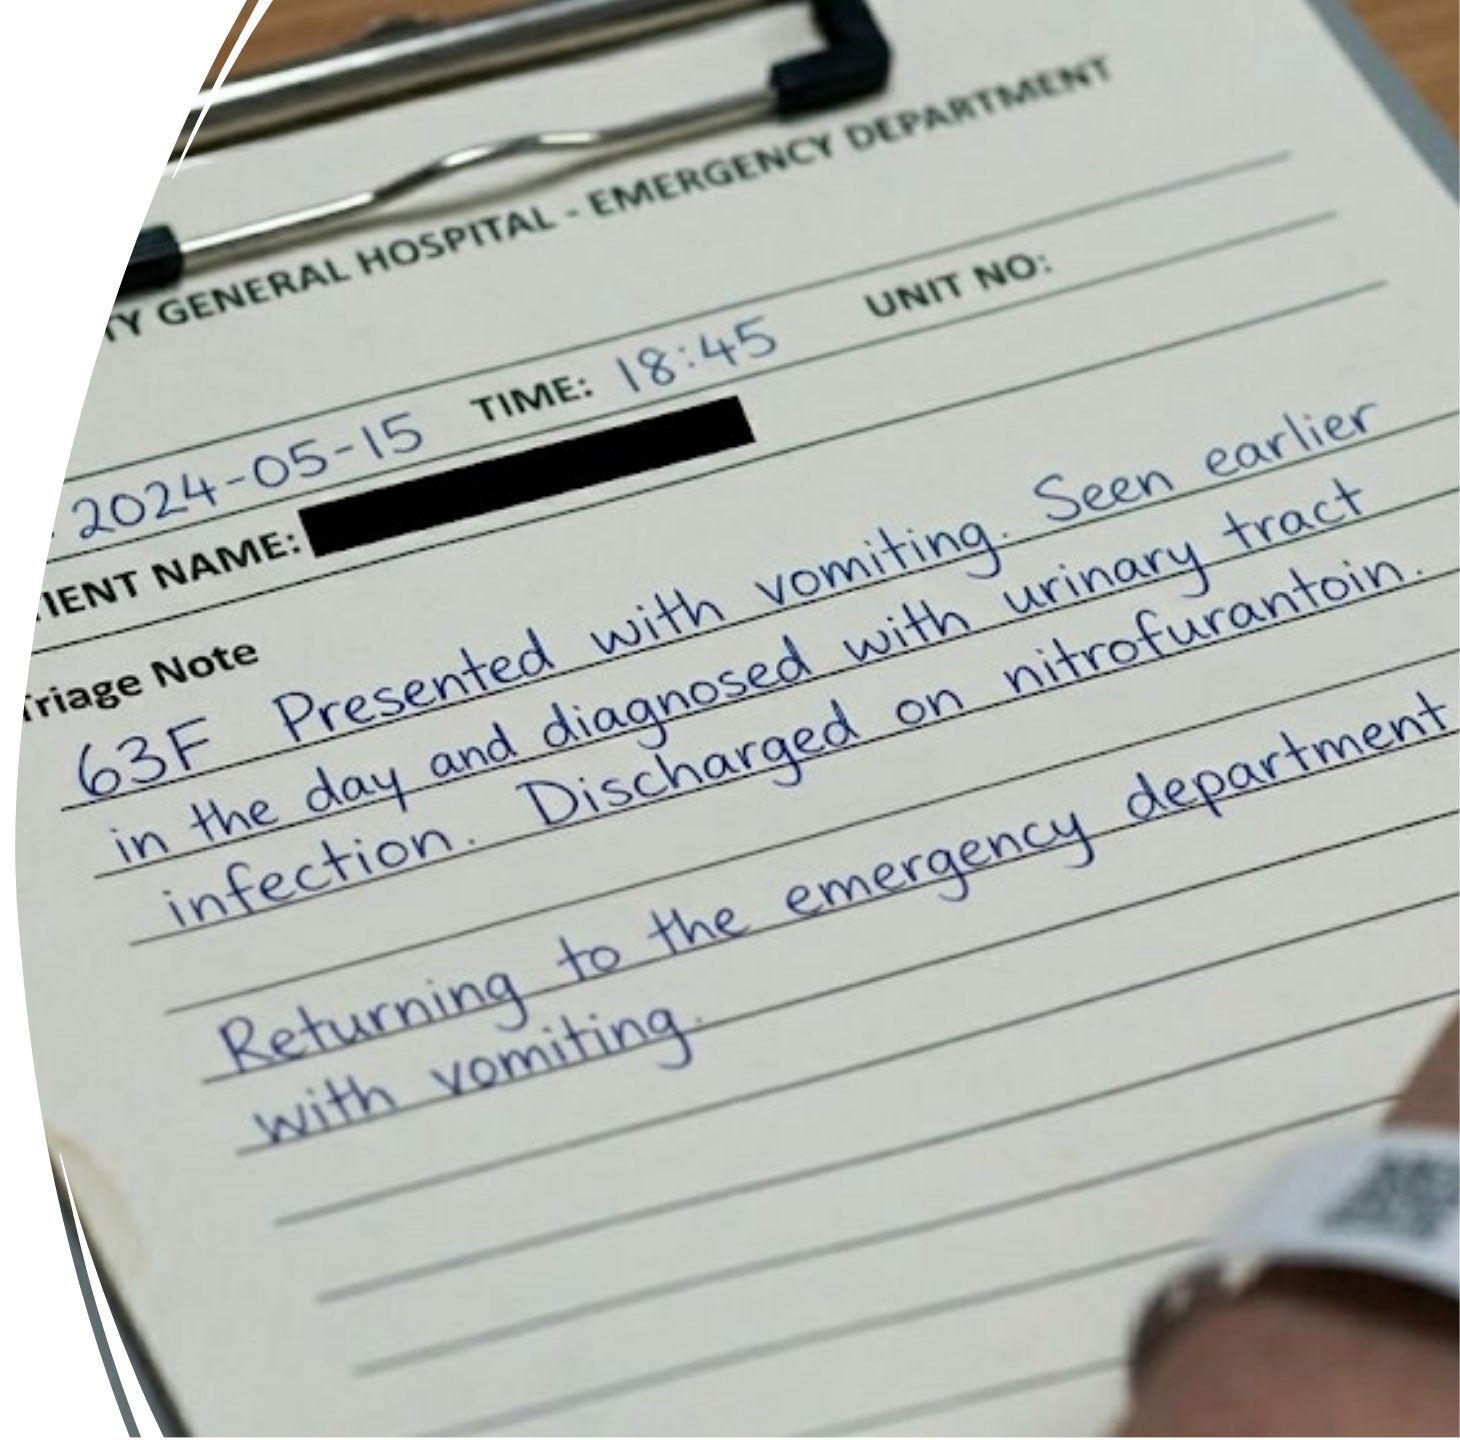 TY GENERAL HOSPITAL - EMERGENCY DEPARTMENT
2024-05-15 TIME: 18:45 UNIT NO:
TIENT NAME:
Triage Note
63F Presented with vomiting. Seen earlier
in the day and diagnosed with urinary tract
infection. Discharged on nitrofurantoin.
Returning to the emergency department
with vomiting.